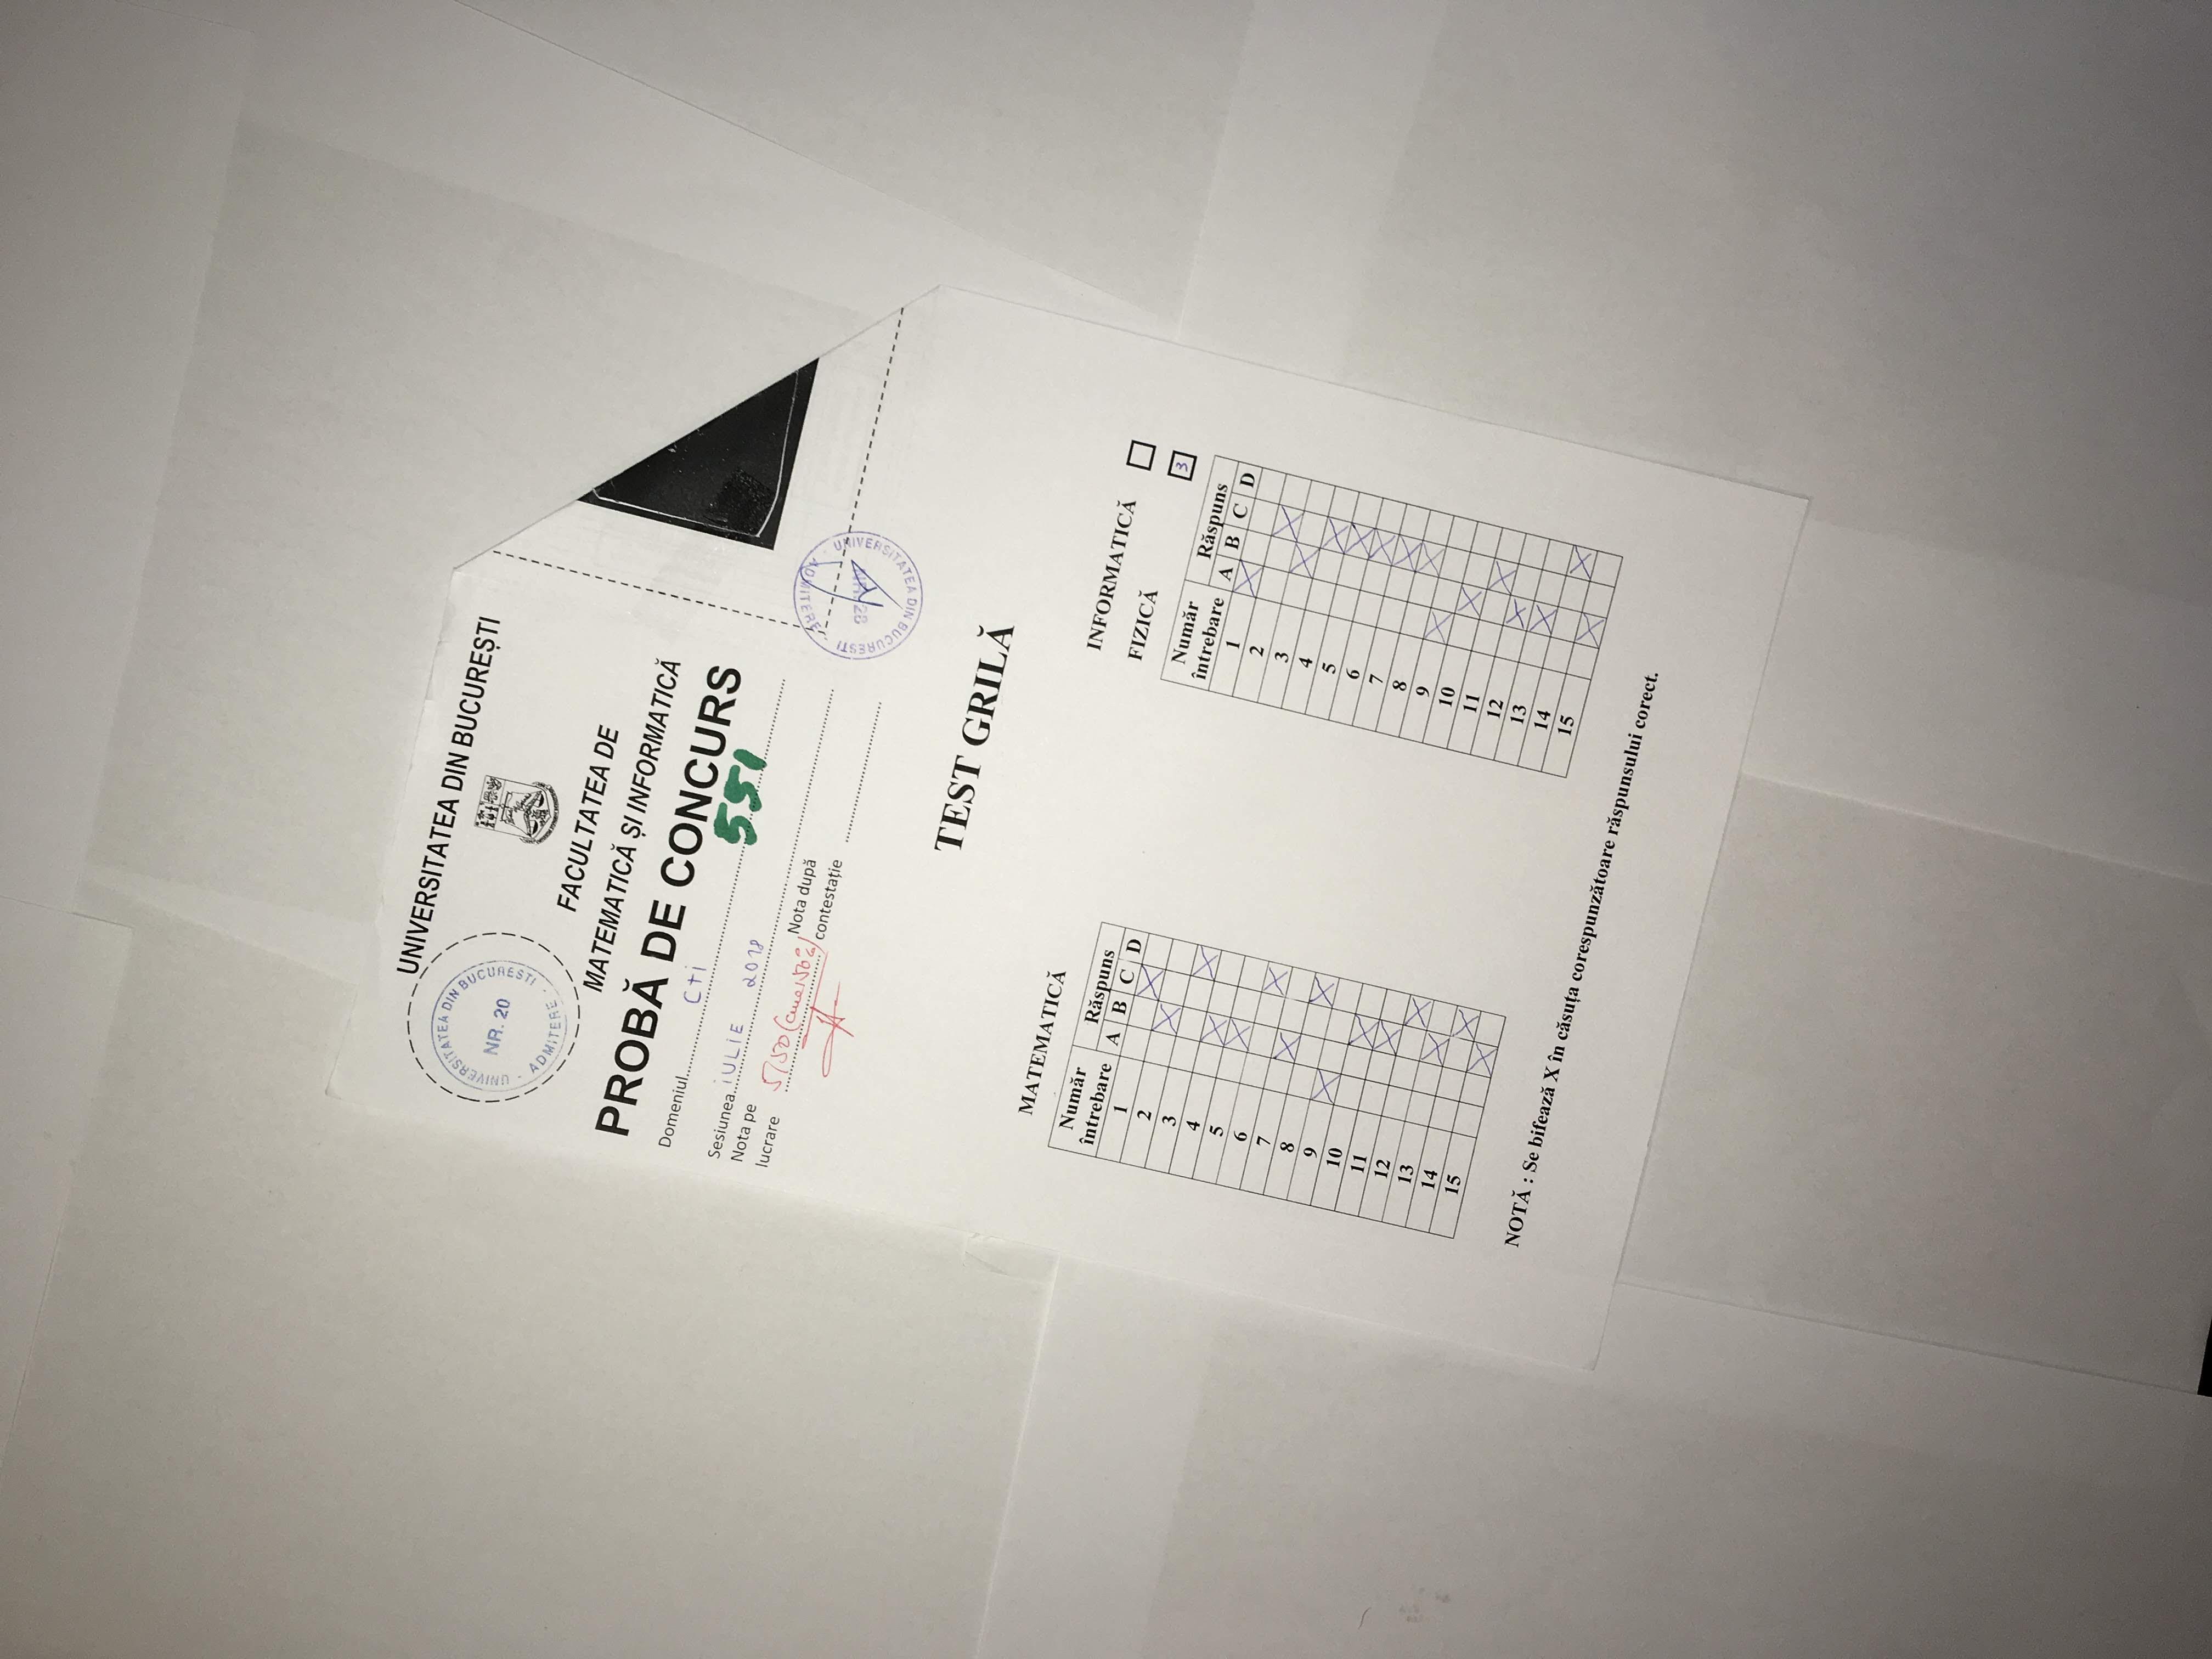 UNIVERSITATEA DIN BUCUREȘTI
UNIVERSITATEA DIN BUCURESTI
NR. 20
ADMITERE
FACULTATEA DE
MATEMATICĂ ȘI INFORMATICĂ
PROBĂ DE CONCURS
Domeniul CTI
551
Sesiunea IULIE 2018
Nota pe
lucrare 5,50
Nota după
contestație
UNIVERSITATEA DIN BUCURESTI
ADMITERE
TEST GRILĂ
MATEMATICĂ
Număr
întrebare
Răspuns
A B C D
1
2
3
4
5
6
7
8
9
10
11
12
13
14
15
INFORMATICĂ
FIZICĂ 3
Număr
întrebare
Răspuns
A B C D
1
2
3
4
5
6
7
8
9
10
11
12
13
14
15
NOTĂ : Se bifează X în căsuța corespunzătoare răspunsului corect.